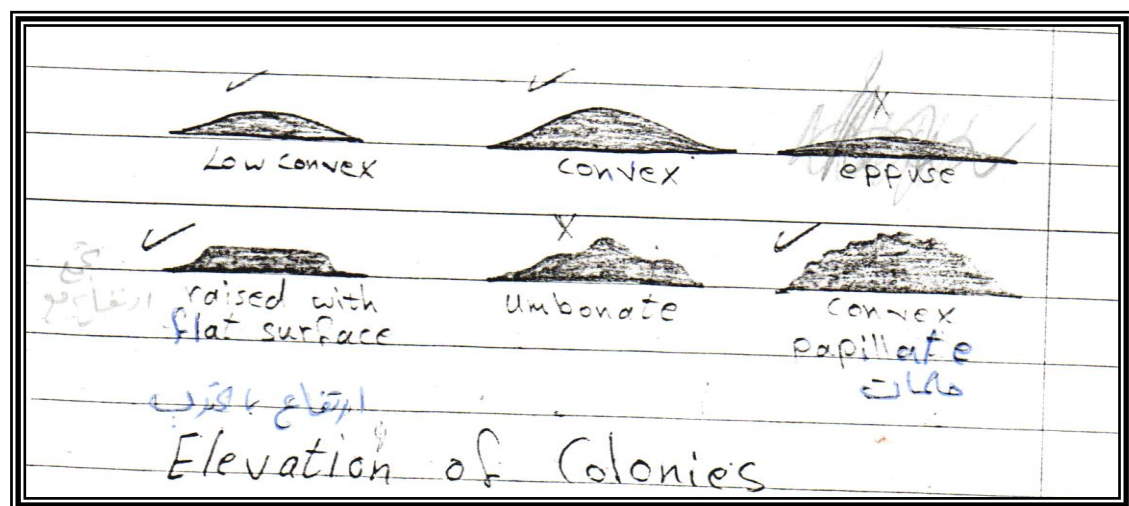 Low convex
convex
effuse
raised with
flat surface
Umbonate
convex
papillate
حلمات
ارتفاع
Elevation of Colonies